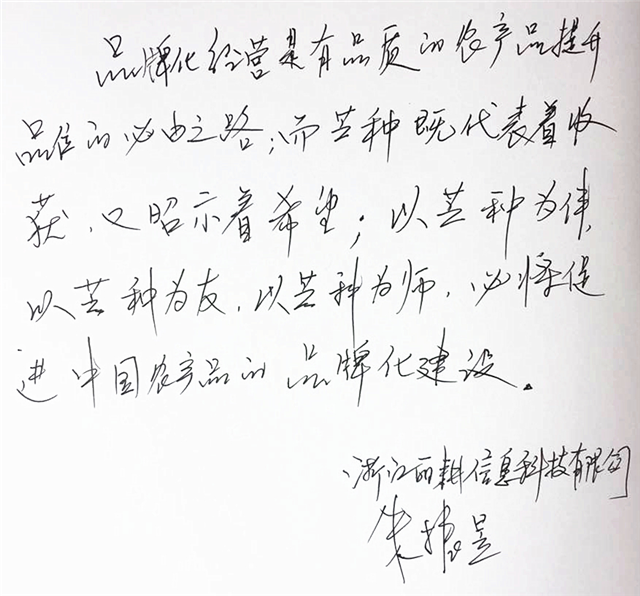 品牌化经营是有品质的农产品提升
品位的必由之路;而芒种既代表着收
获,又昭示着希望;以芒种为伴,
以芒种为友,以芒种为师,必将促
进中国农产品的品牌化建设。
浙江丽耕信息科技有限公司
朱